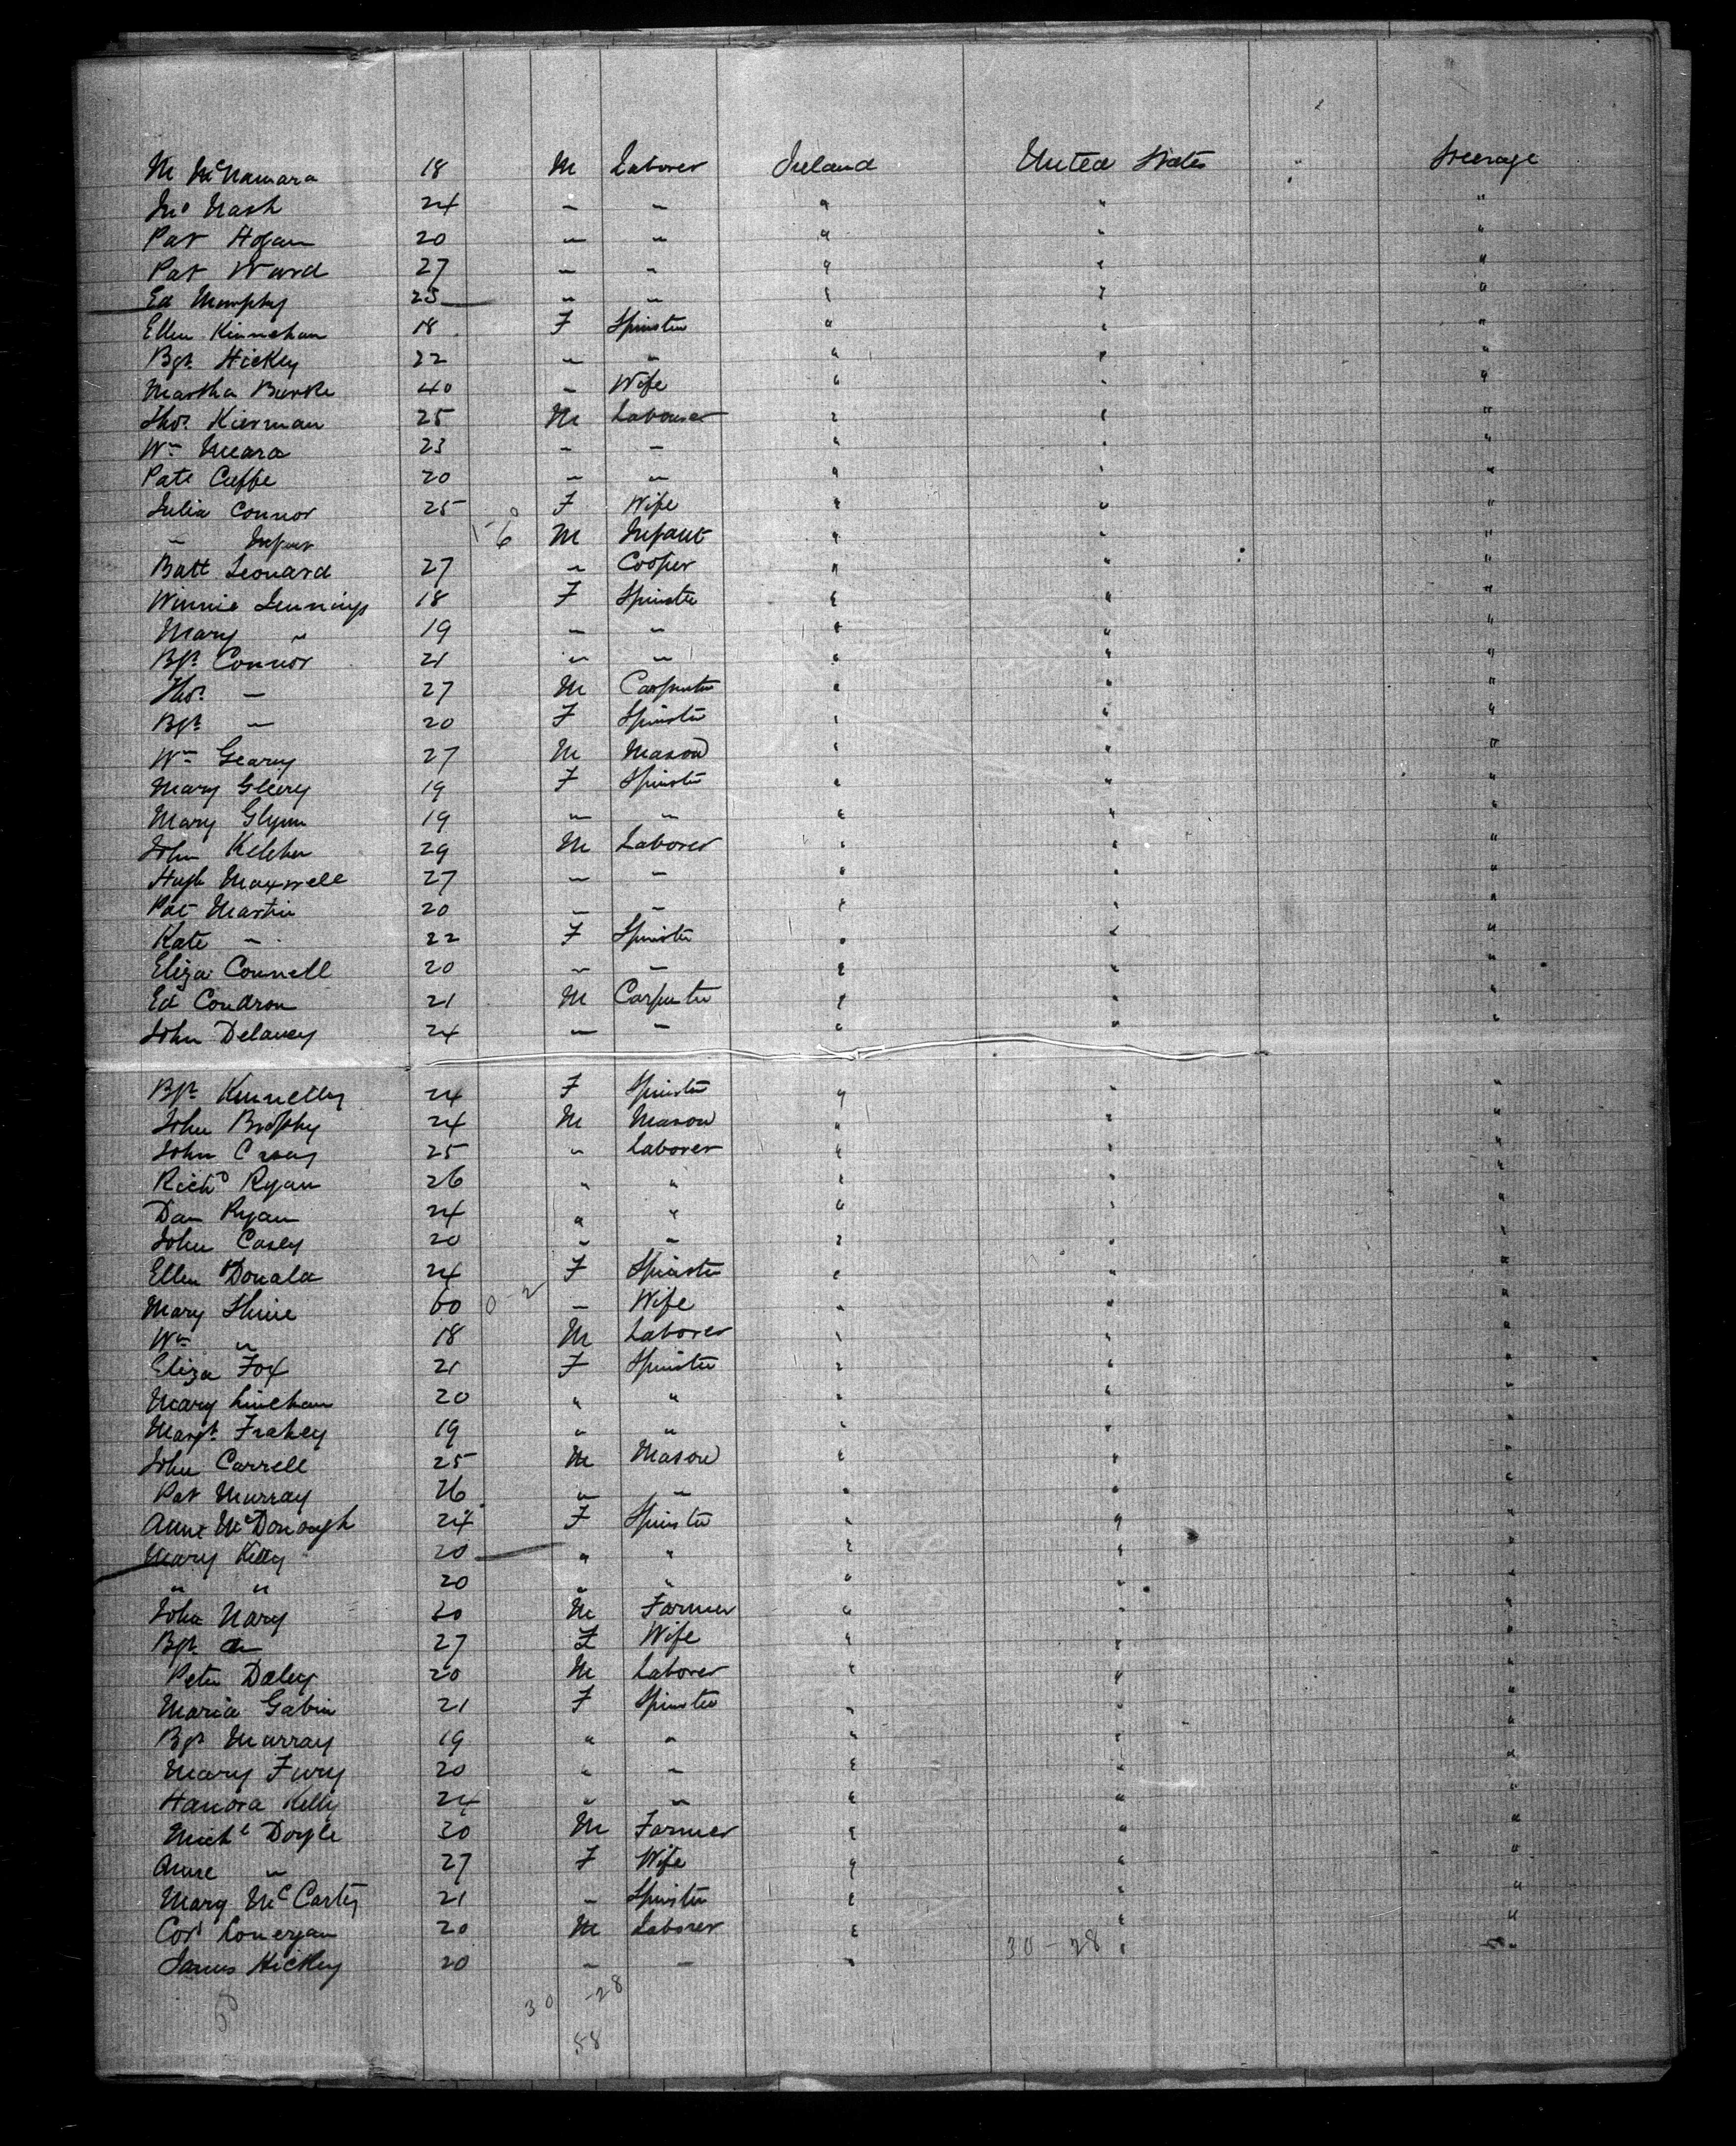 M McNamara 18 M Laborer Ireland United States " Steerage
Jno Nash 24 " " " " "
Pat Hogan 20 " " " " "
Pat Ward 27 " " " " "
Ed Murphy 25 " " " " "
Ellen Kinnehan 18 F Spinster " " "
Bgt Hickey 22 " " " " "
Martha Burke 40 " Wife " " "
Thos. Kiernan 25 M Labourer " " "
Wm Meara 23 " " " " "
Pate Cuffe 20 " " " " "
Julia Connor 25 F Wife " " "
" Infant M Infant " " "
Batt Leonard 27 " Cooper " " "
Winnie Jennings 18 F Spinster " " "
Mary " 19 " " " " "
Bgt Connor 21 " " " " "
Thos. " 27 M Carpenter " " "
Bgt " 20 F Spinster " " "
Wm Geary 27 M Mason " " "
Mary 19 F Spinster " " "
Mary Glynn 19 " " " " "
John Keleher 29 M Laborer " " "
Hugh Maxwell 27 " " " " "
Pat Martin 20 " " " " "
Kate " 22 F Spinster " " "
Eliza Connell 20 " " " " "
Ed Condron 21 M Carpenter " " "
John Delaney 24 " " " " "
Bgt Kennelly 24 F Spinster " " "
John Brophy 24 M Mason " " "
John 25 " Laborer " " "
Richd Ryan 26 " " " " "
Dan Ryan 24 " " " " "
John Casey 20 " " " " "
Ellen 24 F Spinster " " "
Mary Shine 60 0-2 " Wife " " "
Wm " 18 M Laborer " " "
Eliza Fox 21 F Spinster " " "
Mary Linehan 20 " " " " "
Margt. Frahey 19 " " " " "
John Carrell 25 M Mason " " "
Pat Murray 26 " " " " "
Anne McDonough 24 F Spinster " " "
Mary Kelly 20 " " " " "
" " 20 " " " " "
John Nary 30 M Farmer " " "
Bgt " 27 F Wife " " "
Peter Daley 20 M Laborer " " "
Maria Gabin 21 F Spinster " " "
Bgt Murray 19 " " " " "
Mary Fury 20 " " " " "
Hanora Kelly 24 " " " " "
Michl Doyle 30 M Farmer " " "
Anne " 27 F Wife " " "
Mary McCarty 21 " Spinster " " "
20 M Laborer " " "
James Hickey 20 " " " 30-28 " "
58 30 -28
58